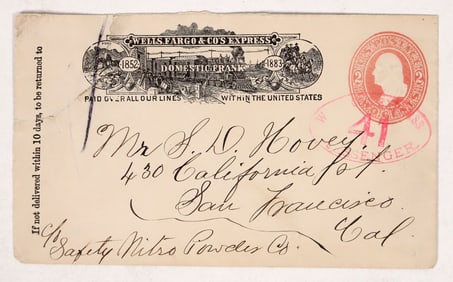 If not delivered within 10 days, to be returned to
WELLS, FARGO & CO'S EXPRESS
1852 DOMESTIC FRANK 1883
PAID OVER ALL OUR LINES WITHIN THE UNITED STATES
41
MESSENGER
Mr S. D. Hovey,
430 California St.
San Francisco
Cal.
c/o
Safety Nitro Powder Co.